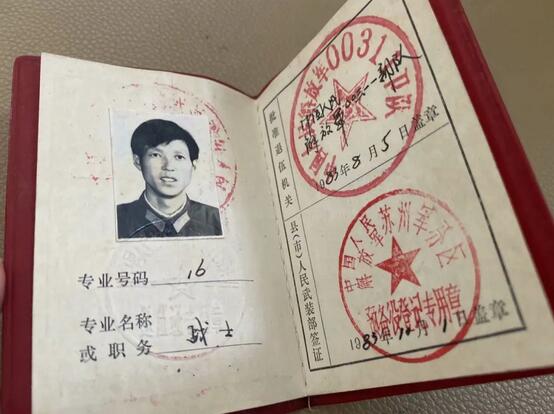 专业号码 16
专业名称
或职务
批准退伍机关
中国人民
解放军
部队
1983年8月5日盖章
0031
部队
县(市)人民武装部签证
中国人民
解放军苏州军分区
预备役登记专用章
1983年10月1日盖章